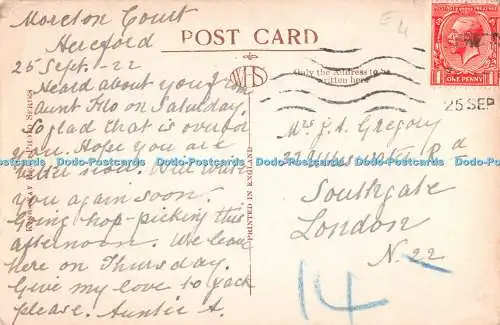 Moreton Court
Hereford
25 Sept. 22
Heard about you from
Aunt Flo on Saturday.
So glad that is over for
you. Hope you are
better now. Will write
you again soon.
Going hop-picking this
afternoon. We leave
here on Thursday.
Give my love to Jack
please. Auntie A.
POST CARD
Only the Address to be
written here
PRINTED IN ENGLAND
ONE PENNY
25 SEP
Mrs J. A. Gregory
22 Rd
Southgate
London
N. 22
14
Dodo-Postcards Dodo-Postcards Dodo-Postcards Dodo-Postcards Dodo-Postcards Dodo-Postcards